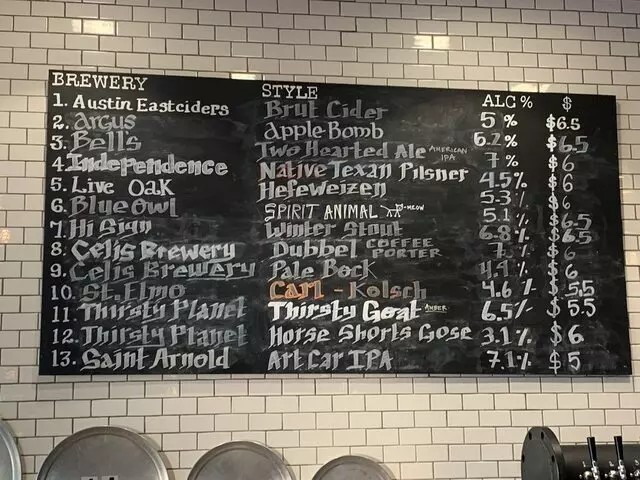 BREWERY STYLE ALC % $
1. Austin Eastciders Brut Cider 5 % $6.5
2. Argus Apple Bomb 6.2 % $6.5
3. Bell's Two Hearted Ale AMERICAN IPA 7 % $6
4. Independence Native Texan Pilsner 4.5% $6
5. Live Oak Hefeweizen 5.3% $6
6. Blue Owl SPIRIT ANIMAL -MEOW 5.1% $6.5
7. Hi Sign Winter Stout 6.8% $6.5
8. Celis Brewery Dubbel COFFEE PORTER 7% $6
9. Celis Brewery Pale Bock 4.1% $6
10. St. Elmo Carl - Kolsch 4.6% $5.5
11. Thirsty Planet Thirsty Goat AMBER 6.5% $5.5
12. Thirsty Planet Horse Shorts Gose 3.1% $6
13. Saint Arnold Art Car IPA 7.1% $5